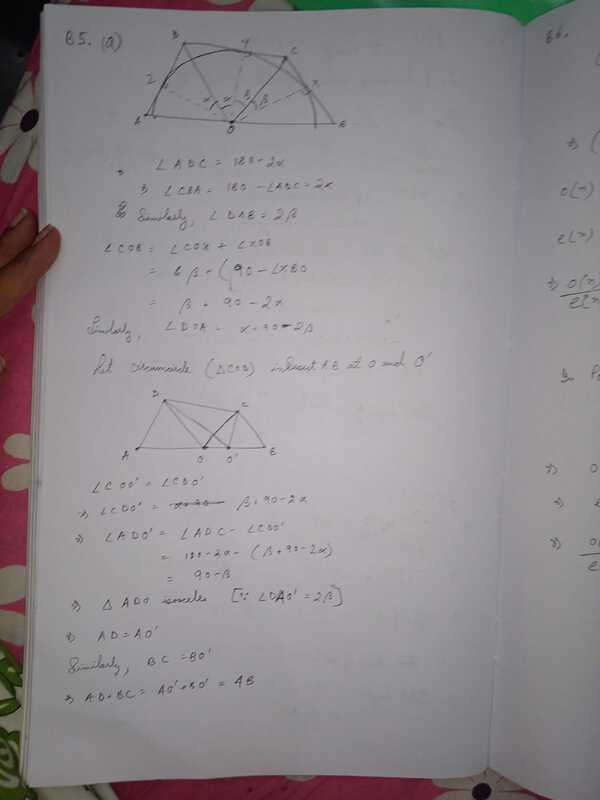 B5. (a)
D Y C
Z X
α α β β
A O B
∠ADC = 180-2α
⇒ ∠CBA = 180 - ∠ADC = 2α
Similarly, ∠DAB = 2β
∠COB = ∠COX + ∠XOB
= β + (90 - ∠XBO
= β + 90 - 2α
Similarly, ∠DOA = α+90-2β
Let circumcircle (ΔCOD) intersect AB at O and O'
D C
A O O' B
∠COO' = ∠CDO'
⇒ ∠CDO' = β+90-2α
⇒ ∠ADO' = ∠ADC - ∠CDO'
= 180-2α - (β+90-2α)
= 90-β
⇒ Δ ADO isosceles [∵ ∠DAO' = 2β]
⇒ AD = AO'
Similarly, BC = BO'
⇒ AD+BC = AO'+BO' = AB
B6.
⇒ (
O(x)
e(x)
⇒ O(x)
e(x
⇒ O
⇒
⇒ O(
e(